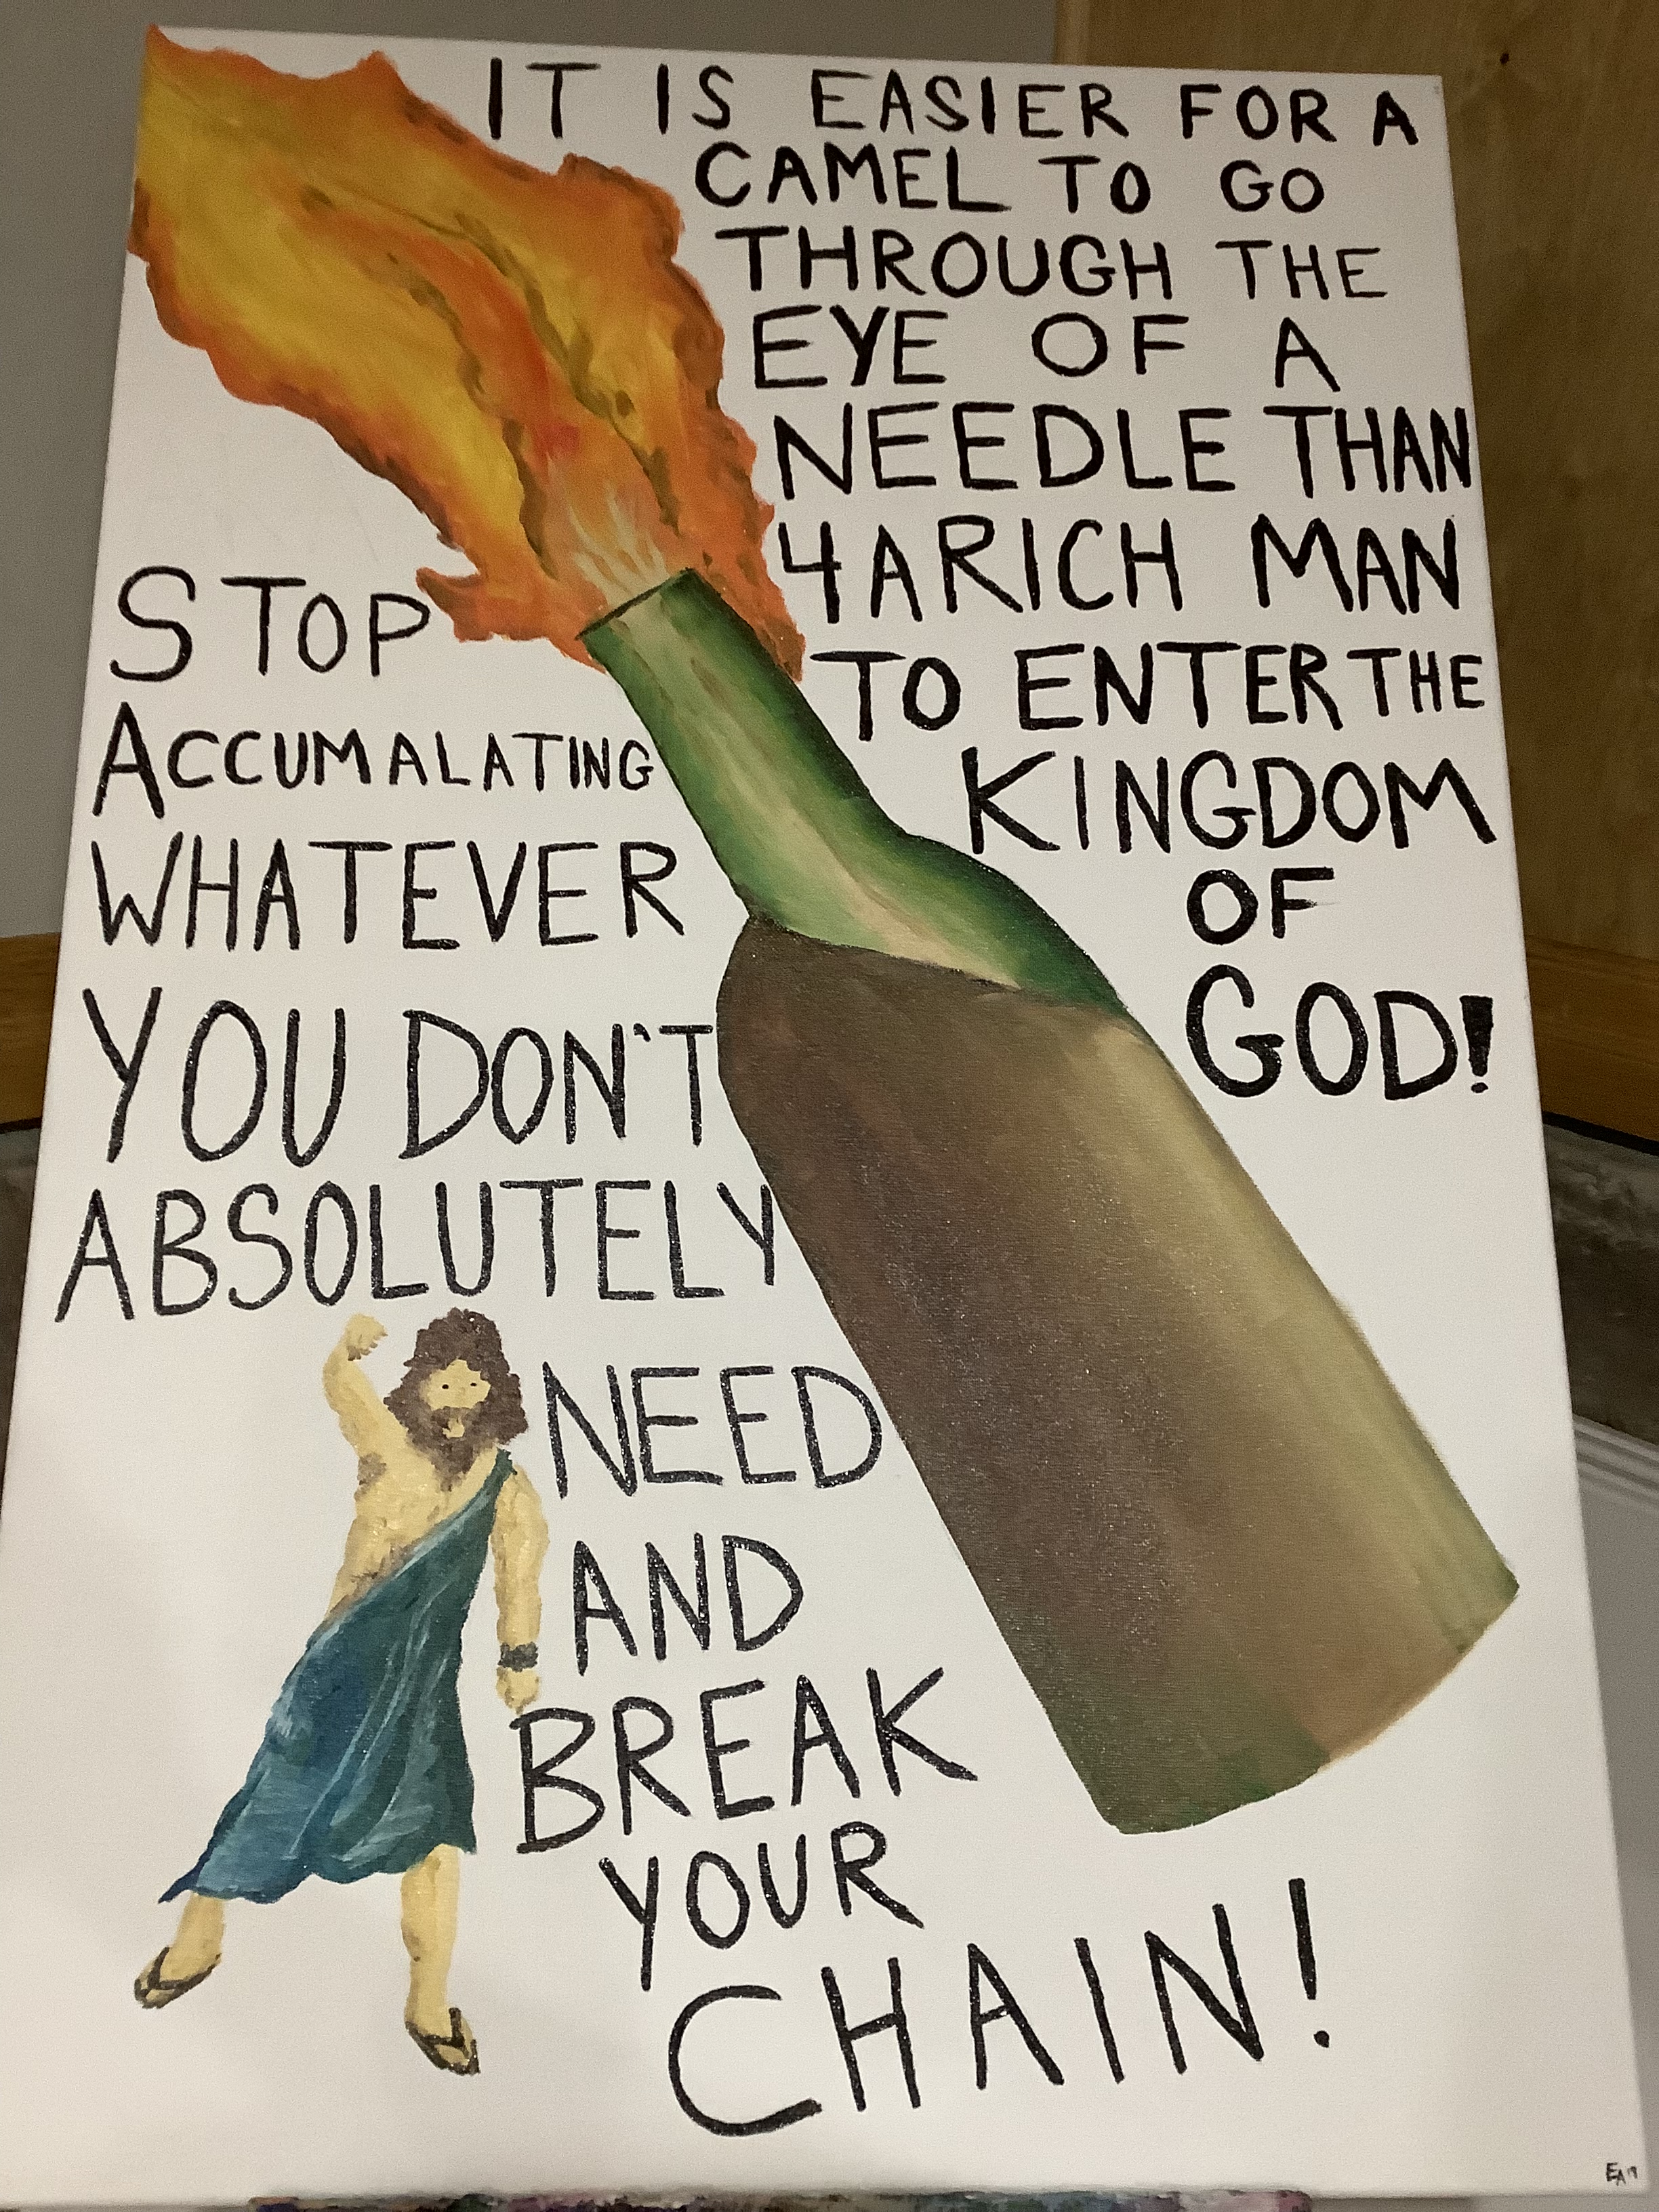 IT IS EASIER FOR A
CAMEL TO GO
THROUGH THE
EYE OF A
NEEDLE THAN
4 A RICH MAN
TO ENTER THE
KINGDOM
OF
GOD!
STOP
ACCUMALATING
WHATEVER
YOU DON'T
ABSOLUTELY
NEED
AND
BREAK
YOUR
CHAIN!
EA 19